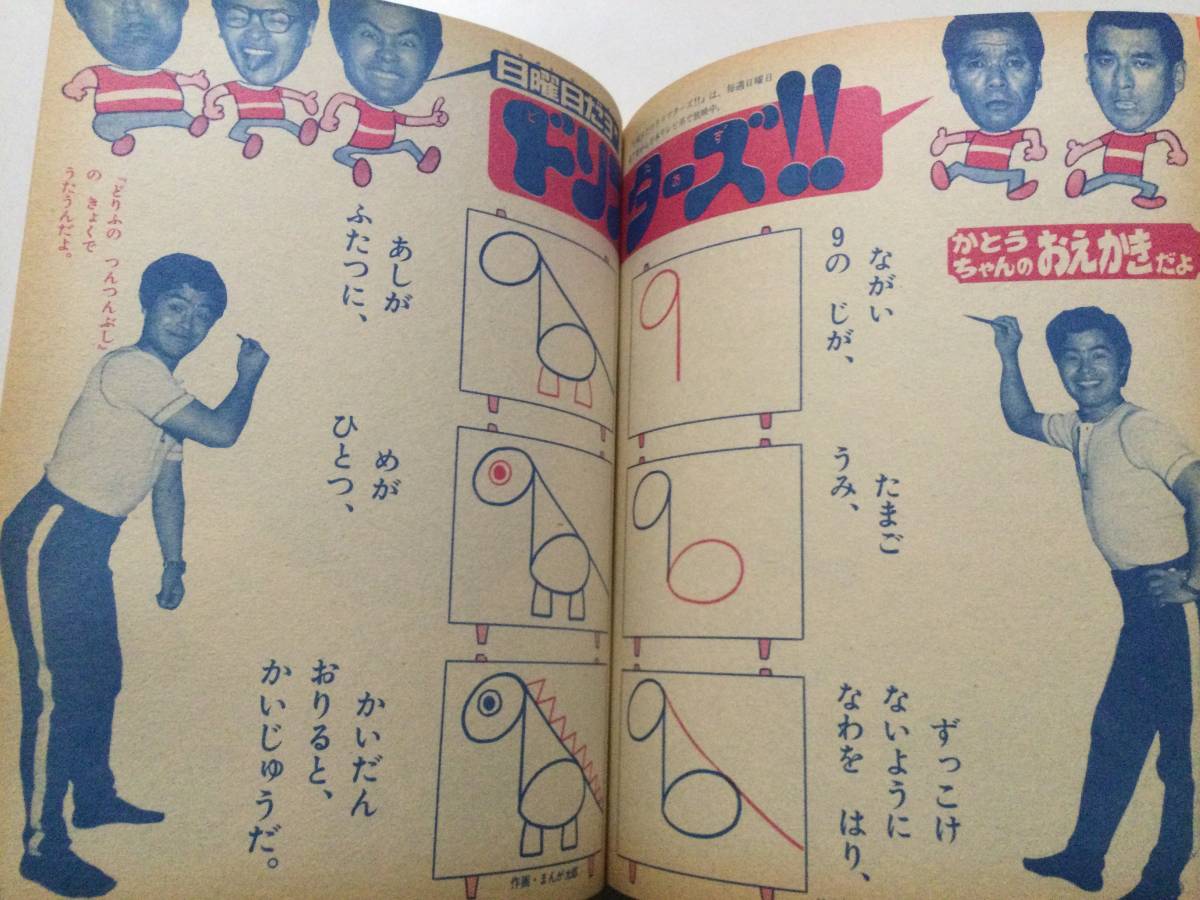 日曜日だョ
ドリフターズ!!
は、毎週日曜日
かとう
ちゃんの おえかき だよ
ながい
9の じが、
たまご
うみ、
ずっこけ
ないように
なわを はり、
あしが
ふたつに、
めが
ひとつ、
かいだん
おりると、
かいじゅうだ。
『どりふの つんつんぶし』
の きょくで
うたうんだよ。
作画・まんが太郎